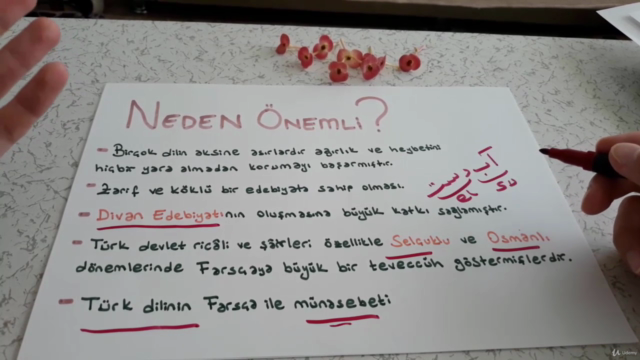 NEDEN ÖNEMLİ?
- Birçok dilin aksine asırlardır ağırlık ve heybetini
hiçbir yara almadan korumayı başarmıştır.
- Zarif ve köklü bir edebiyata sahip olması.
آب دست
el su
- Divan Edebiyatının oluşmasına büyük katkı sağlamıştır.
- Türk devlet ricâli ve şâirleri özellikle Selçuklu ve Osmanlı
dönemlerinde Farsçaya büyük bir teveccüh göstermişlerdir.
- Türk dilinin Farsça ile münasebeti
Udemy